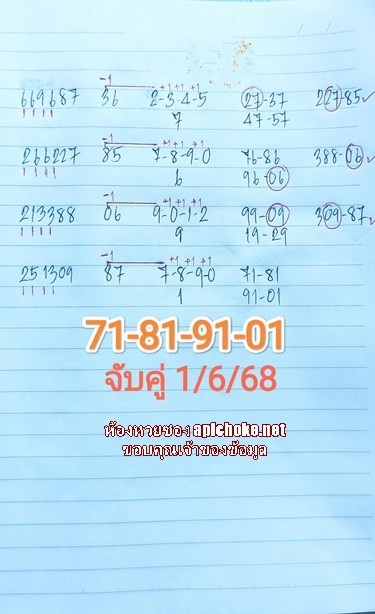 -1 +1 +1 +1
669687 36 2-3-4-5 27-37 227-85
7 47-57
-1 +1 +1 +1
266227 85 7-8-9-0 76-86 388-06
6 96-06
-1 +1 +1 +1
213388 06 9-0-1-2 99-09 309-87
9 19-29
-1 +1 +1 +1
251309 87 7-8-9-0 71-81
1 91-01
71-81-91-01
จับคู่ 1/6/68
ห้องหวยซอง apichoke.net
ขอบคุณเจ้าของข้อมูล